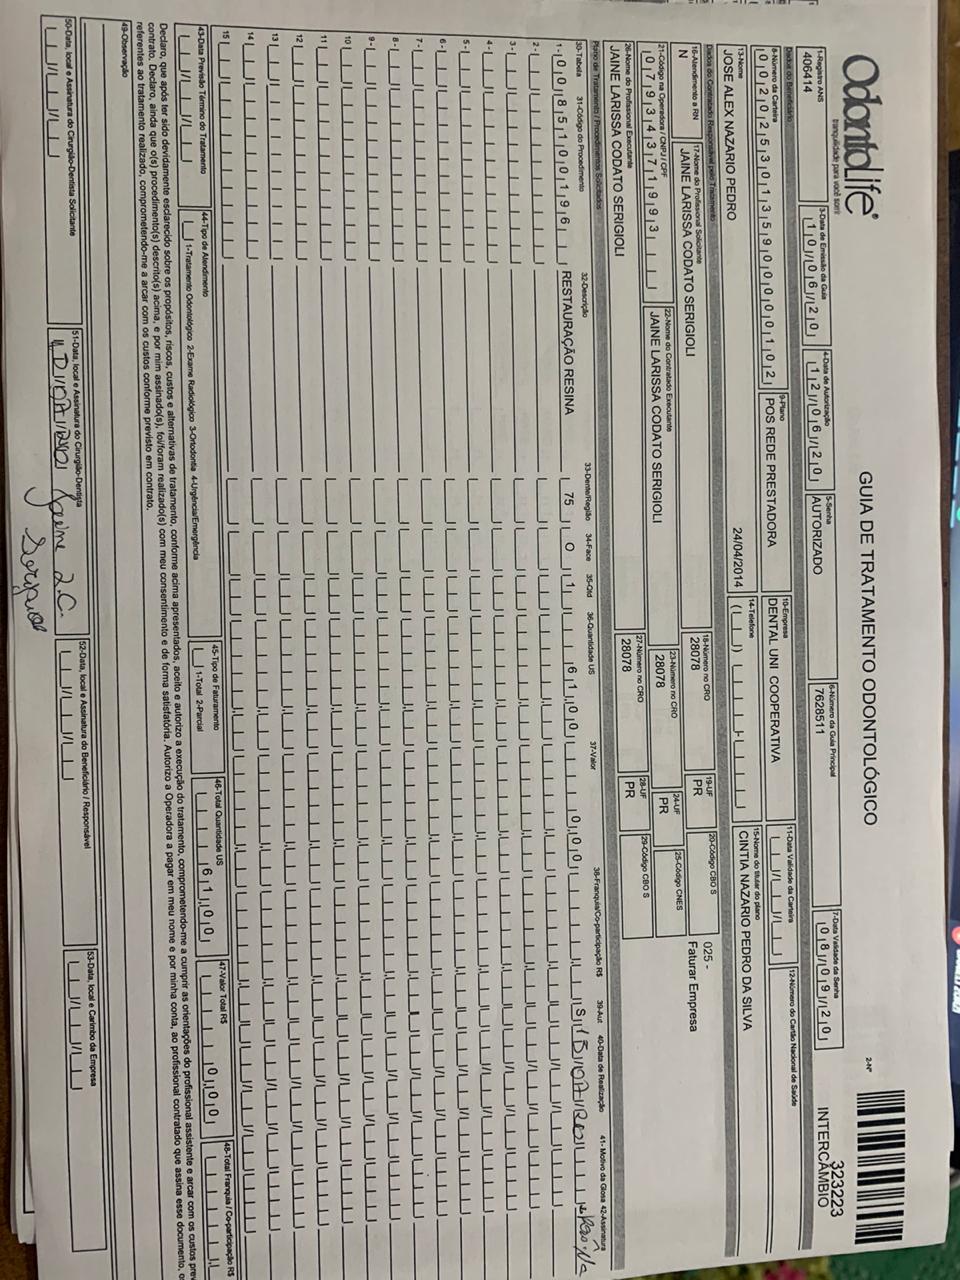 OdontoLife®
tranquilidade para você sorrir
GUIA DE TRATAMENTO ODONTOLÓGICO
2-Nº
323223
INTERCÂMBIO
1-Registro ANS
406414
3-Data de Emissão da Guia
10/06/20
4-Data de Autorização
12/06/20
5-Senha
AUTORIZADO
6-Número da Guia Principal
7628511
7-Data Validade da Senha
08/09/20
Dados do Beneficiário
8-Número da Carteira
00202530113590000102
9-Plano
POS REDE PRESTADORA
10-Empresa
DENTAL UNI COOPERATIVA
11-Data Validade da Carteira
12-Número do Cartão Nacional de Saúde
13-Nome
JOSE ALEX NAZARIO PEDRO
24/04/2014
14-Telefone
15-Nome do titular do plano
CINTIA NAZARIO PEDRO DA SILVA
Dados do Contratado Responsável pelo Tratamento
16-Atendimento a RN
N
17-Nome do Profissional Solicitante
JAINE LARISSA CODATO SERIGIOLI
18-Número no CRO
28078
19-UF
PR
20-Código CBO S
025 -
Faturar Empresa
21-Código na Operadora / CNPJ / CPF
07934371993
22-Nome do Contratado Executante
JAINE LARISSA CODATO SERIGIOLI
23-Número no CRO
28078
24-UF
PR
25-Código CNES
26-Nome do Profissional Executante
JAINE LARISSA CODATO SERIGIOLI
27-Número no CRO
28078
28-UF
PR
29-Código CBO S
Plano de Tratamento / Procedimentos Solicitados
30-Tabela 31-Código do Procedimento 32-Descrição 33-Dente/Região 34-Face 35-Qtd 36-Quantidade US 37-Valor 38-Franquia/Co-participação R$ 39-Aut 40-Data de Realização 41- Motivo da Glosa 42-Assinatura
1- 00 85100196 RESTAURAÇÃO RESINA 75 O 1 61,00 0,00 S
2-
3-
4-
5-
6-
7-
8-
9-
10
11
12
13
14
15
43-Data Previsão Término do Tratamento
44-Tipo de Atendimento
1-Tratamento Odontológico 2-Exame Radiológico 3-Ortodontia 4-Urgência/Emergência
45-Tipo de Faturamento
1-Total 2-Parcial
46-Total Quantidade US
61,00
47-Valor Total R$
0,00
48-Total Franquia / Co-participação R$
Declaro, que após ter sido devidamente esclarecido sobre os propósitos, riscos, custos e alternativas de tratamento, conforme acima apresentados, aceito e autorizo a execução do tratamento, comprometendo-me a cumprir as orientações do profissional assistente e arcar com os custos
contrato. Declaro, ainda que o(s) procedimento(s) descrito(s) acima, e por mim assinado(s), foi/foram realizado(s) com meu consentimento e de forma satisfatória. Autorizo a Operadora a pagar em meu nome e por minha conta, ao profissional contratado que assina esse documento,
referentes ao tratamento realizado, comprometendo-me a arcar com os custos conforme previsto em contrato.
49-Observação
50-Data, local e Assinatura do Cirurgião-Dentista Solicitante
51-Data, local e Assinatura do Cirurgião-Dentista
52-Data, local e Assinatura do Beneficiário / Responsável
53-Data, local e Carimbo da Empresa